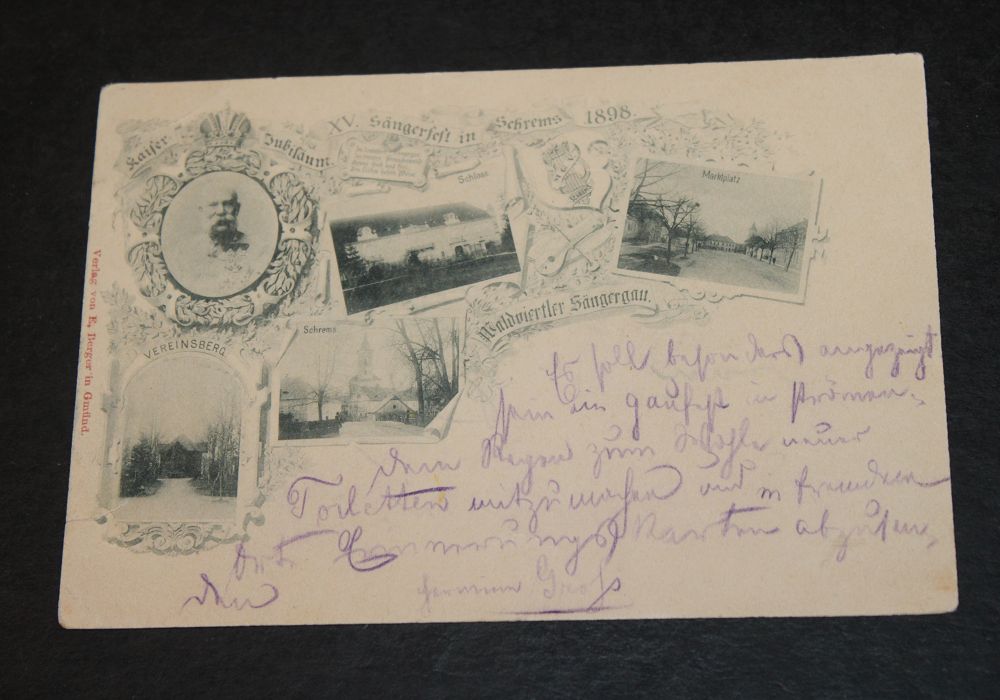 Kaiser Jubiläum
XV. Sängerfest in Schrems 1898.
Schloss
Marktplatz
Waldviertler Sängergau.
Schrems
VEREINSBERG
Verlag von E. Berger in Gmünd.
Es soll besonders angezeigt
sein ein gaufest in strömen-
dem Regen zum Wohle neuer
Toiletten mitzumachen und in fremdem
Orte Erinnerungs Karten abzusen-
den